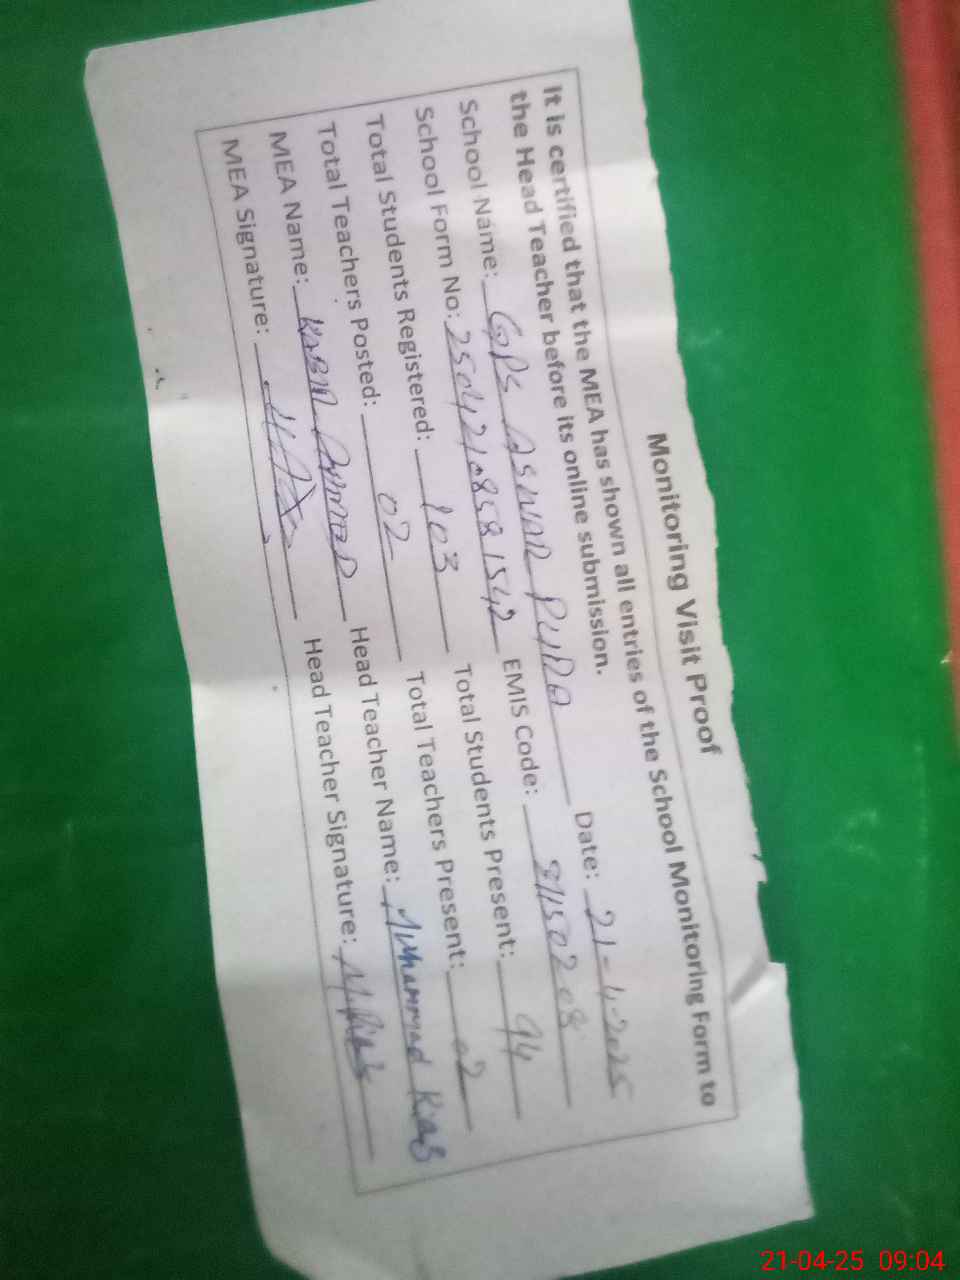 Monitoring Visit Proof
It is certified that the MEA has shown all entries of the School Monitoring Form to
the Head Teacher before its online submission.
School Name: GPS ASWAR PURA Date: 21-4-2025
School Form No: 25042108581542 EMIS Code: 31150208
Total Students Registered: 103 Total Students Present: 94
Total Teachers Posted: 02 Total Teachers Present: 02
MEA Name: Head Teacher Name: Muhammad Riaz
MEA Signature: Head Teacher Signature: M. Riaz
21-04-25 09:04